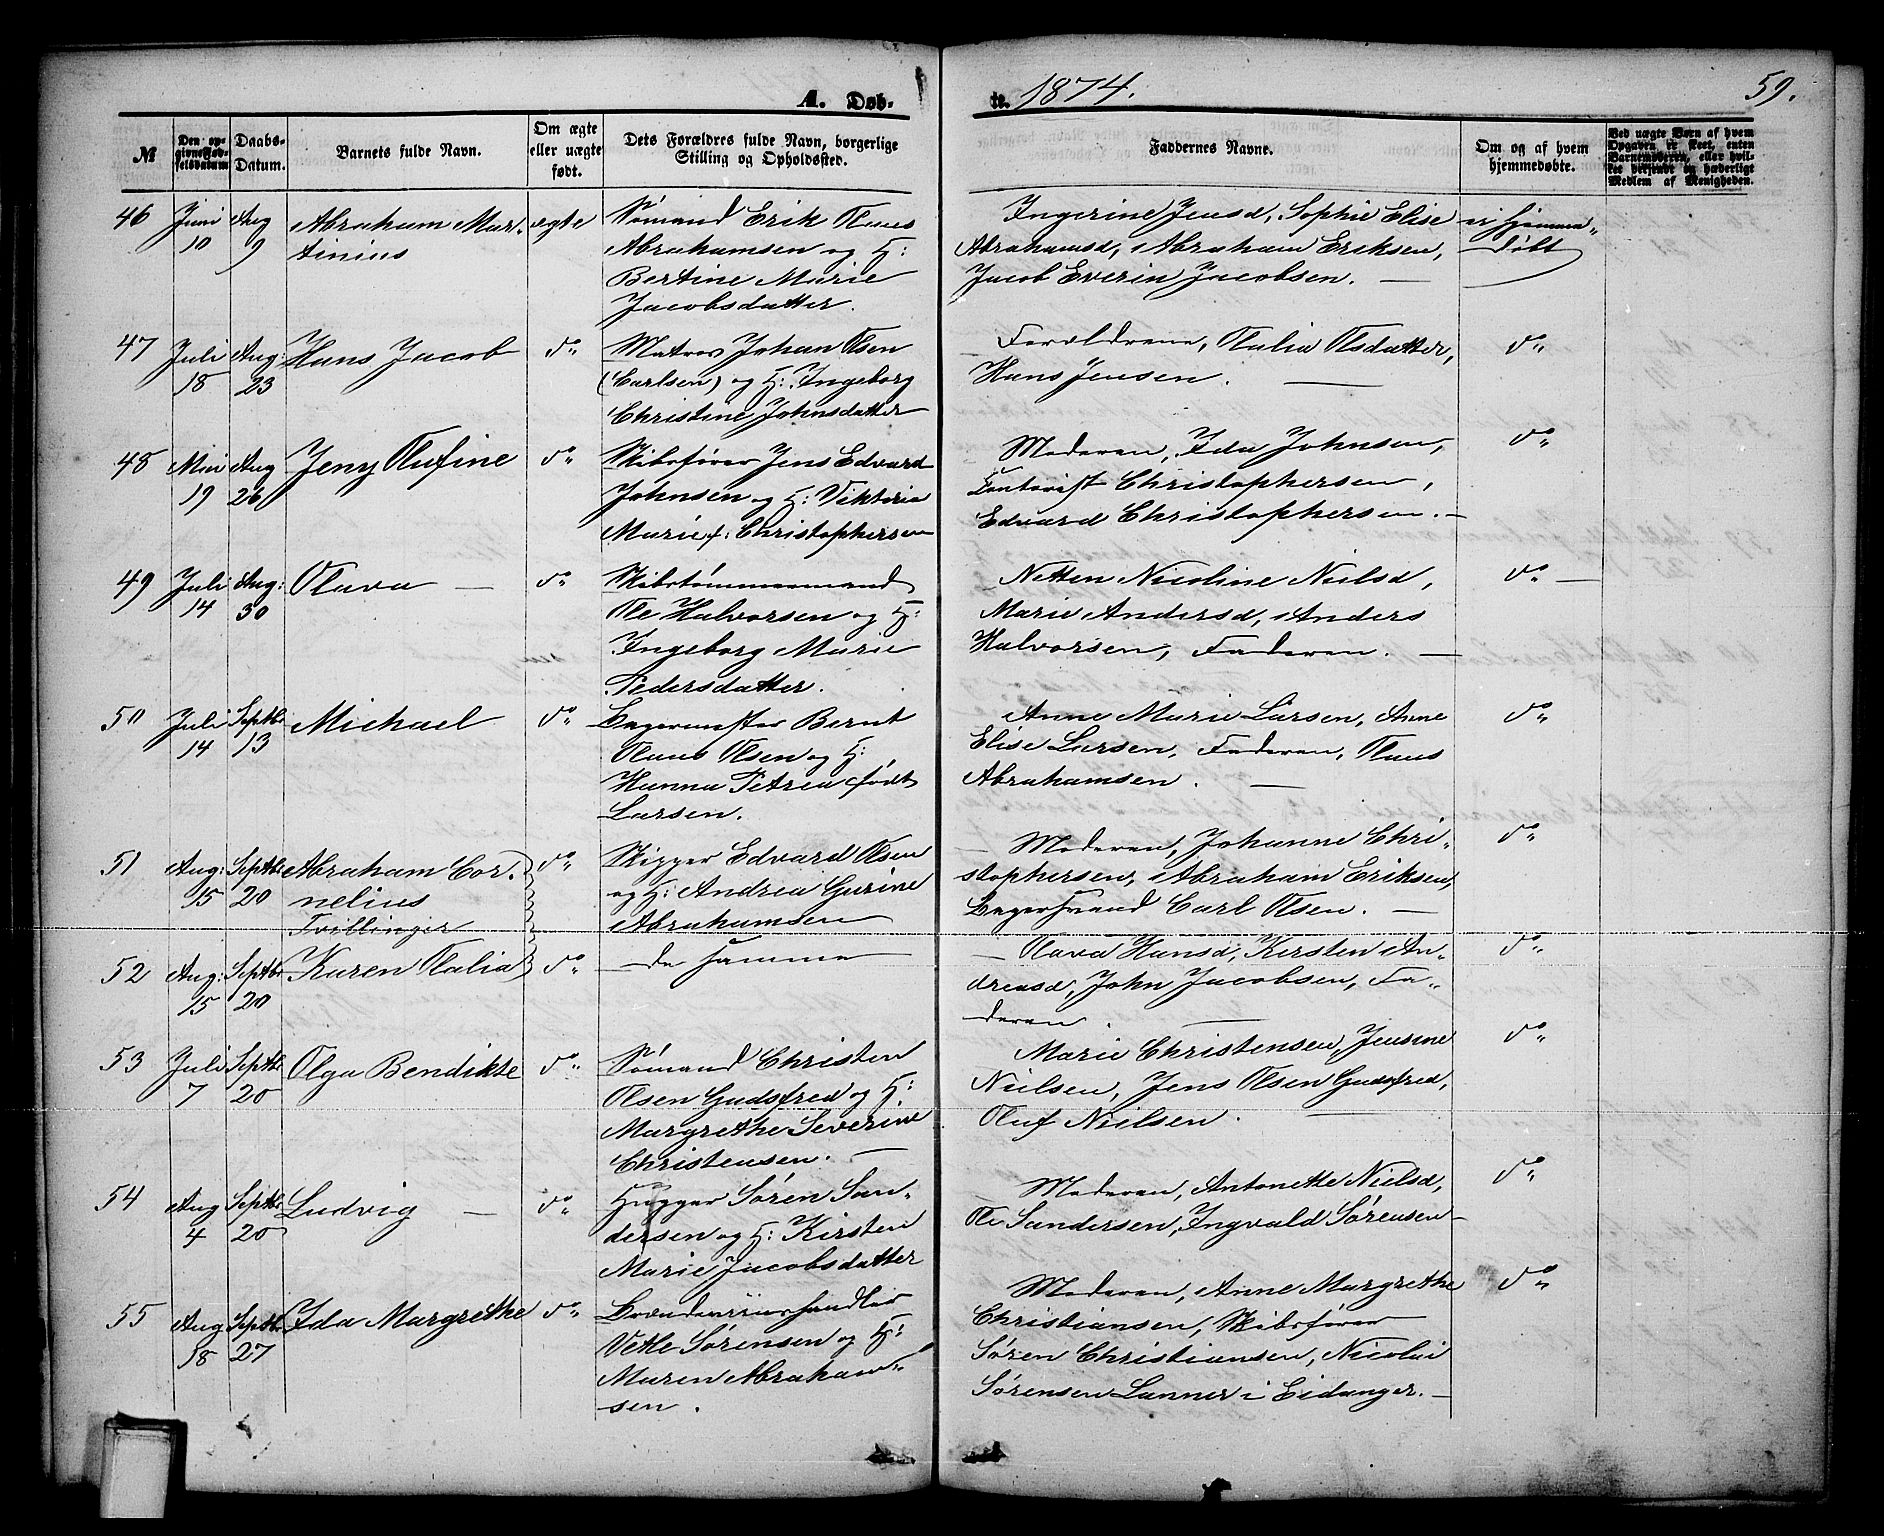 A. Døb-
te. 1874.
59.
№
Den op-
givne Fød-
selsdatum
Daabs-
Datum.
Barnets fulde Navn.
Om ægte
eller uægte
født.
Dets Forældres fulde Navn, borgerlige
Stilling og Opholdssted.
Faddernes Navne.
Om og af hvem
hjemmedøbte.
Ved uægte Børn af hvem
Opgaven er skeet, enten
Barnemoderen, eller hvil-
ket vidende og hæderligt
Medlem af Menigheden.
46 Juni 10 Aug 9 Abraham Mar-
tinius
ægte
Sømand Erik Olaus
Abrahamsen og H:
Bertine Marie
Jacobsdatter.
Ingerine Jensd, Sophie Elise
Abrahamsd, Abraham Eriksen,
Jacob Everin Jacobsen. —
ei hjemme-
døbt
47 Juli 18 Aug: 23 Hans Jacob do
Matros Johan Olsen
(Carlsen) og H: Ingeborg
Christine Johnsdatter
Forældrene, Olalia Olsdatter,
Hans Jensen. —
do
48 Mai 19 Aug 26 Jeny Olufine do
Skibsfører Jens Edvard
Johnsen og H: Viktoria
Marie f: Christophersen
Moderen, Ida Johnsen,
Contorist Christophersen,
Edvard Christophersen. —
do
49 Juli 14 Aug: 30 Olava — do
Skibstømmermand
Ole Halvorsen og H:
Ingeborg Marie
Pedersdatter.
Netten Nicoline Nielsd,
Marie Andersd, Anders
Halvorsen, Faderen. —
do —
50 Juli 14 Septbr 13 Michael do
Bagermester Bernt
Olaus Olsen og H:
Hanna Petrea født
Larsen.
Anne Marie Larsen, Anne
Elise Larsen, Faderen, Olaus
Abrahamsen. —
do
51 Aug: 15 Septbr 20 Abraham Cor-
nelius
Tvillinger
do
Skipper Edvard Olsen
og H: Andrea Gurine
Abrahamsen
— Moderen, Johanne Chri-
stophersen, Abraham Eriksen,
Bagersvend Carl Olsen. —
do
52 Aug: 15 Septbr 20 Karen Olalia do
— de samme —
— Olava Hansd, Kirsten An-
dreasd, John Jacobsen, Fa-
deren. —
do
53 Juli 7 Septbr 20 Olga Bendikte do
Sømand Christen
Olsen Gudsfred og H:
Margrethe Severine
Christensen. —
Marie Christensen, Jensine
Nielsen, Jens Olsen Gudsfred,
Oluf Nielsen. —
do
54 Aug 4 Septbr 20 Ludvig — do
Hugger Søren San-
dersen og H: Kirsten
Marie Jacobsdatter
Moderen, Antonette Nielsd,
Ole Sandersen, Ingvald Sørensen —
do
55 Aug 18 Septbr 27 Ida Margrethe do
Brændeviinshandler
Vetle Sørensen og H:
Maren Abraham-
sen.
Moderen, Anne Margrethe
Christiansen, Skibsfører
Søren Christiansen, Nicolai
Sørensen Lanner i Eidanger. —
do